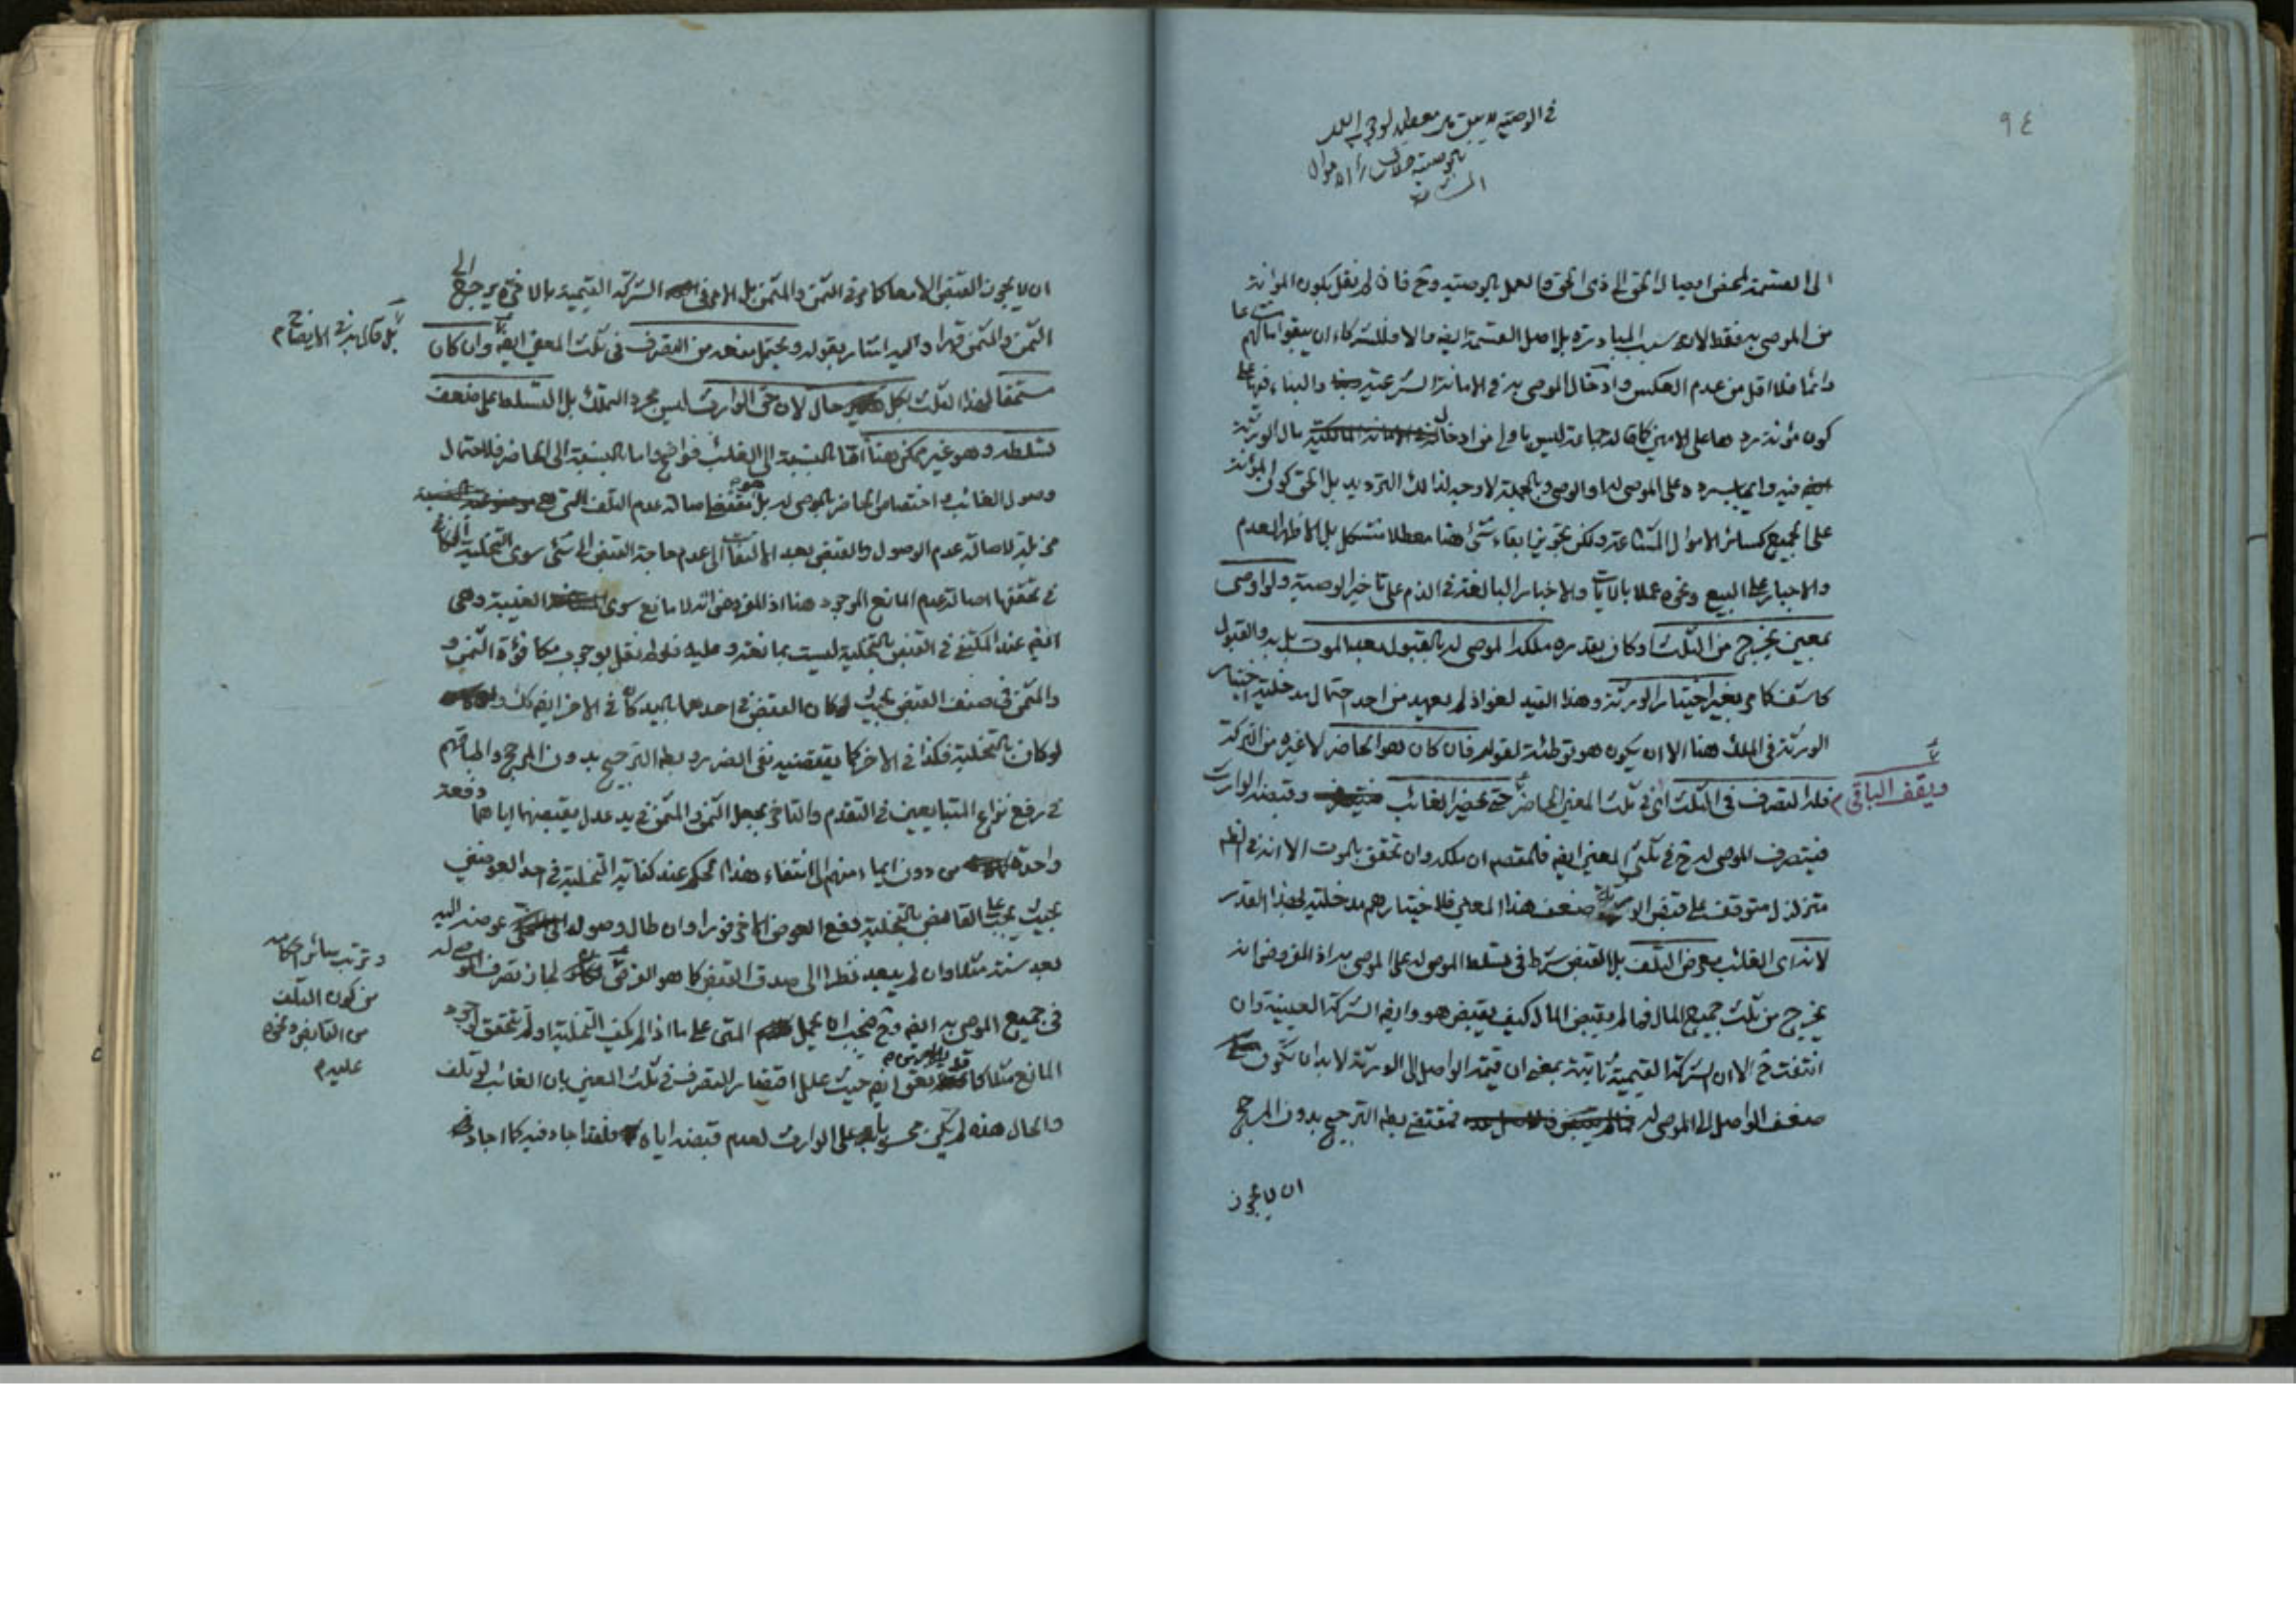 ٩٤
في الوصية لا يبقى مال معطلا لوجوب العمل
بالوصية خلاف سائر الاموال
المشتركة
الى القسمة لمحض ايصال الحق الى ذي الحق والعمل بالوصية وح فان لم نقل بكون المؤنة
من الموصى به فقط لانه سبب المبادرة بل اصل القسمة ايضا والا فللشركاء ان يبقوا مالهم مشاعا
دائما فلا اقل من عدم العكس وادخال الموصى به في الامانة الشرعية والبناء فيها على
كون مؤنة ردها على الامين كما قاله جماعة ليس باولى من ادخاله مال الورثة
فيه وايجاب رده على الموصى له او الوصي وبالجملة لا وجه لذلك الترديد بل الحق كون المؤنة
على الجميع كسائر الاموال المشاعة ولكن تجويز ابقاء شئ هنا معطلا مشكل بل الاظهر العدم
والاجبار على البيع ونحوه عملا بالايات والاخبار البالغة في الذم على تاخير الوصية ولو اوصى
بمعين يخرج من الثلث او كان بقدره ملكه الموصى له بالقبول بعد الموت بل به والقبول
كاشف كما مر بغير اختيار الورثة وهذا القيد لغو اذ لم يعهد من احد احتمال مدخلية اختيار
الورثة في الملك هنا الا ان يكون هو توطئة لقوله فان كان هو الحاضر لا غيره من التركة
فله التصرف في الثلث اي في ثلث المعين الحاضر حتى يحضر الغائب وقبضه الوارث
ويقف الباقي م
فيتصرف الموصى له ح في ثلثي المعين ايضا فالمقصد ان ملكه وان تحقق بالموت الا انه في
متزلزل متوقف على قبض الورثة ضعف هذا المعين فلاختيارهم مدخلية لهذا القدر
لانه اي الغائب معرض التلف بل القبض شرط في تسلط الموصى له على الموصى به اذ المفروض انه
يخرج من ثلث جميع المال فما لم يقبض المال كيف يقبض هو وايضا الشركة العينية وان
انتفت ح الا ان الشركة القيمية ثابتة بمعنى ان قيمة الواصل الى الورثة لا بد ان تكون
ضعف الواصل الى الموصى له فمقتضى بطلان الترجيح بدون المرجح
ان لا يجوز
ان لا يجوز القبض الا معا كما مر في الثمن والمثمن بل الامر في الشركة القيمية بالاخرة يرجع الى
الثمن والمثمن قهرا واليه اشار بقوله ويحتمل منعه من التصرف في ثلث المعين ايضا وان كان
بل قال به في الايضاح م
مستحقا لهذا الثلث بكل حال لان حق الوارث ليس مجرد التملك بل التسلط على ضعف
تسلطه وهو غير ممكن هنا اما بالنسبة الى الغائب فواضح واما بالنسبة الى الحاضر فلاحتمال
وصول الغائب واختصاص الحاضر بالموصى له بل هو مقتضى اصالة عدم التلف التي هي
مزيلة لاصالة عدم الوصول والقبض بعد الالتفات الى عدم حاجة القبض الى شئ سوى التخلية الكافي
في تحققها اصالة عدم المانع الموجود هنا اذ المفروض انه لا مانع سوى الغيبة وهي
ايضا عند المكتفي في القبض بالتخلية ليست بمانعة وعليه فلو لم نقل بوجوب مكافؤة الثمن و
والمثمن في صنف القبض بحيث لو كان القبض في احدهما باليد كان في الاخر ايضا كذلك و
لو كان بالتخلية فكذا في الاخر كما يقتضيه نفي الضرر وبطلان الترجيح بدون المرجح واطباقهم
في رفع نزاع المتبايعين في التقدم والتاخر بجعل الثمن والمثمن في يد عدل يقبضهما اياهما دفعة
واحدة من دون ايماء منهم الى انتفاء هذا الحكم عند كفاية التخلية في احد العوضين
بحيث يجب على القابض بالتخلية دفع العوض الاخر فورا وان طال وصول عوضه اليه
وترتب سائر احكامه
من كون التلف
من القابض ونحوه
عليه م
بعد سنة مثلا وان لم يبعد نظرا الى صدق القبض كما هو الفرض لجاز تصرف الموصى له
في جميع الموصى به ايضا وح فيجب ان يحمل المتن على ما اذا لم يكف التخلية او لم تتحقق لوجود
المانع مثلا كما قد يومي اليه ايضا حيث علل اختصار التصرف في ثلث المعين بان الغائب لو تلف
والحال هذه لم يكن محسوبا على الوارث لعدم قبضه اياه فلقد اجاد فيه كما اجاد